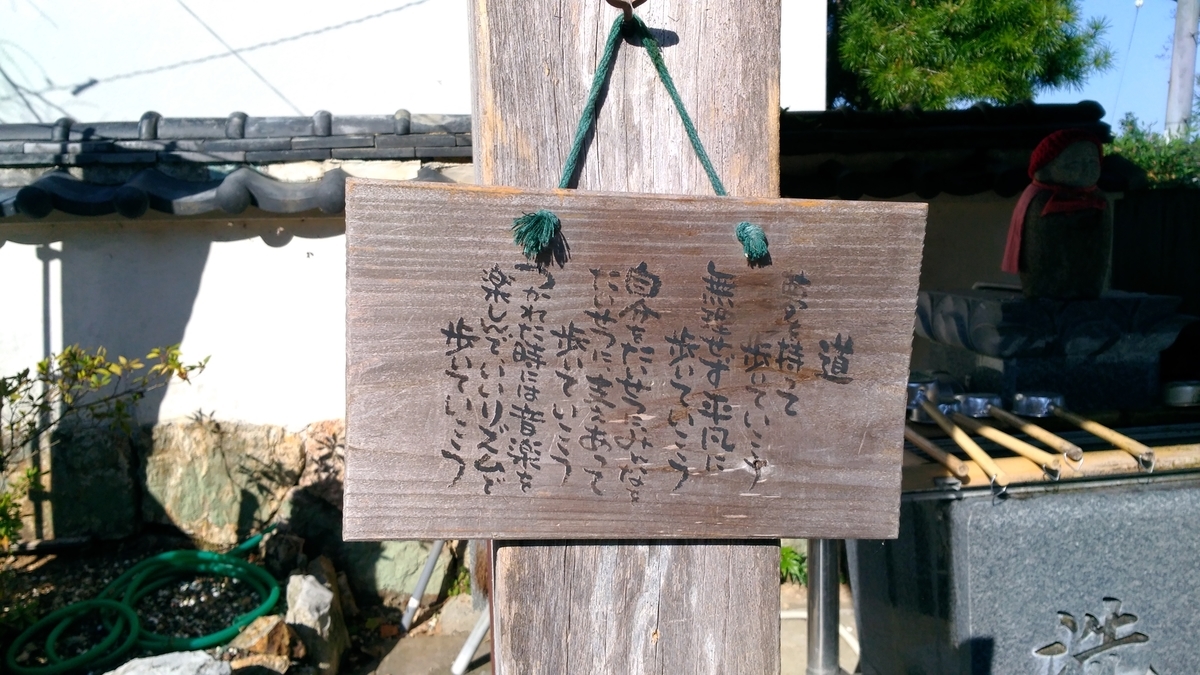 道
ゆめを持って
歩いていこう
無理せず平凡に
歩いていこう
自分をたいせつにみんなを
たいせつに支えあって
歩いていこう
つかれた時には音楽を
楽しんでいいリズムで
歩いていこう
洗